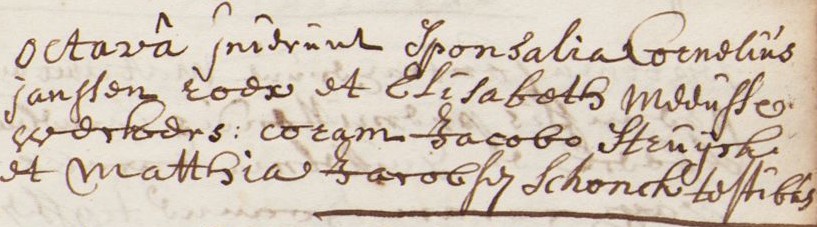 octavâ inierunt Sponsalia Cornelius
janssen roex et Elisabeth Meeusse
weckers: coram Jacobo Struyck
et Matthia Jacobsen Schonck testibus